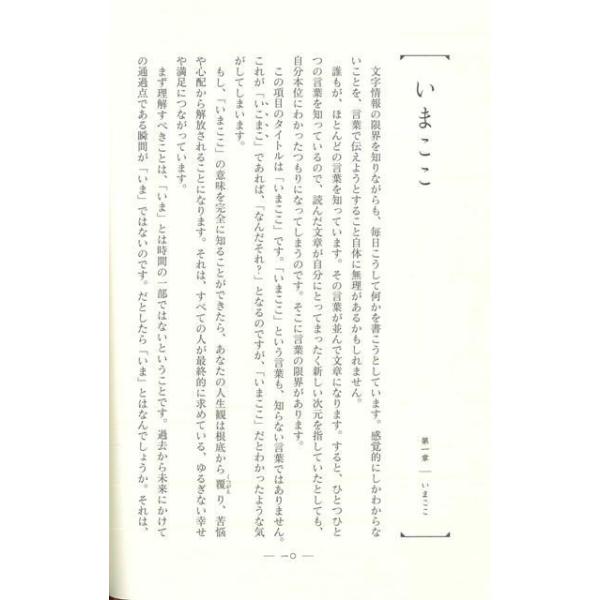 いまここ
第一章 いまここ
文字情報の限界を知りながらも、毎日こうして何かを書こうとしています。感覚的にしかわからな
いことを、言葉で伝えようとすること自体に無理があるかもしれません。
誰もが、ほとんどの言葉を知っています。その言葉が並んで文章になります。すると、ひとつひと
つの言葉を知っているので、読んだ文章が自分にとってまったく新しい次元を指していたとしても、
自分本位にわかったつもりになってしまうのです。そこに言葉の限界があります。
この項目のタイトルは「いまここ」です。「いまここ」という言葉も、知らない言葉ではありません。
これが「いこまこ」であれば、「なんだそれ？」となるのですが、「いまここ」だとわかったような気
がしてしまいます。
もし、「いまここ」の意味を完全に知ることができたら、あなたの人生観は根底から覆り、苦悩
や心配から解放されることになります。それは、すべての人が最終的に求めている、ゆるぎない幸せ
や満足につながっています。
まず理解すべきことは、「いま」とは時間の一部ではないということです。過去から未来にかけて
の通過点である瞬間が「いま」ではないのです。だとしたら「いま」とはなんでしょうか。それは、
一〇